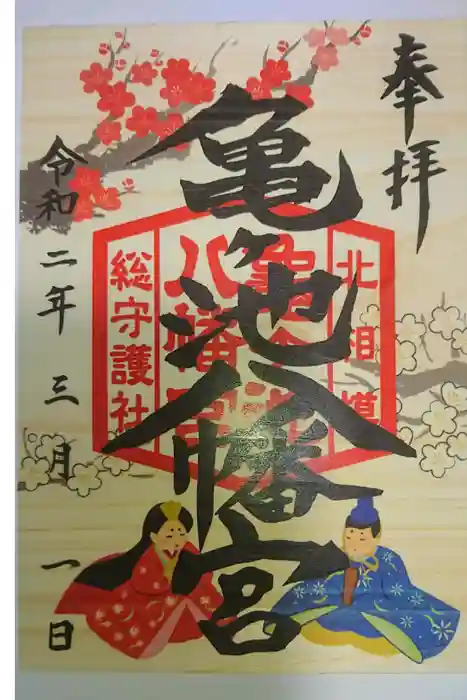 奉拝
北相模
亀ヶ池
八幡宮
総守護社
亀ヶ池八幡宮
令和二年三月一日